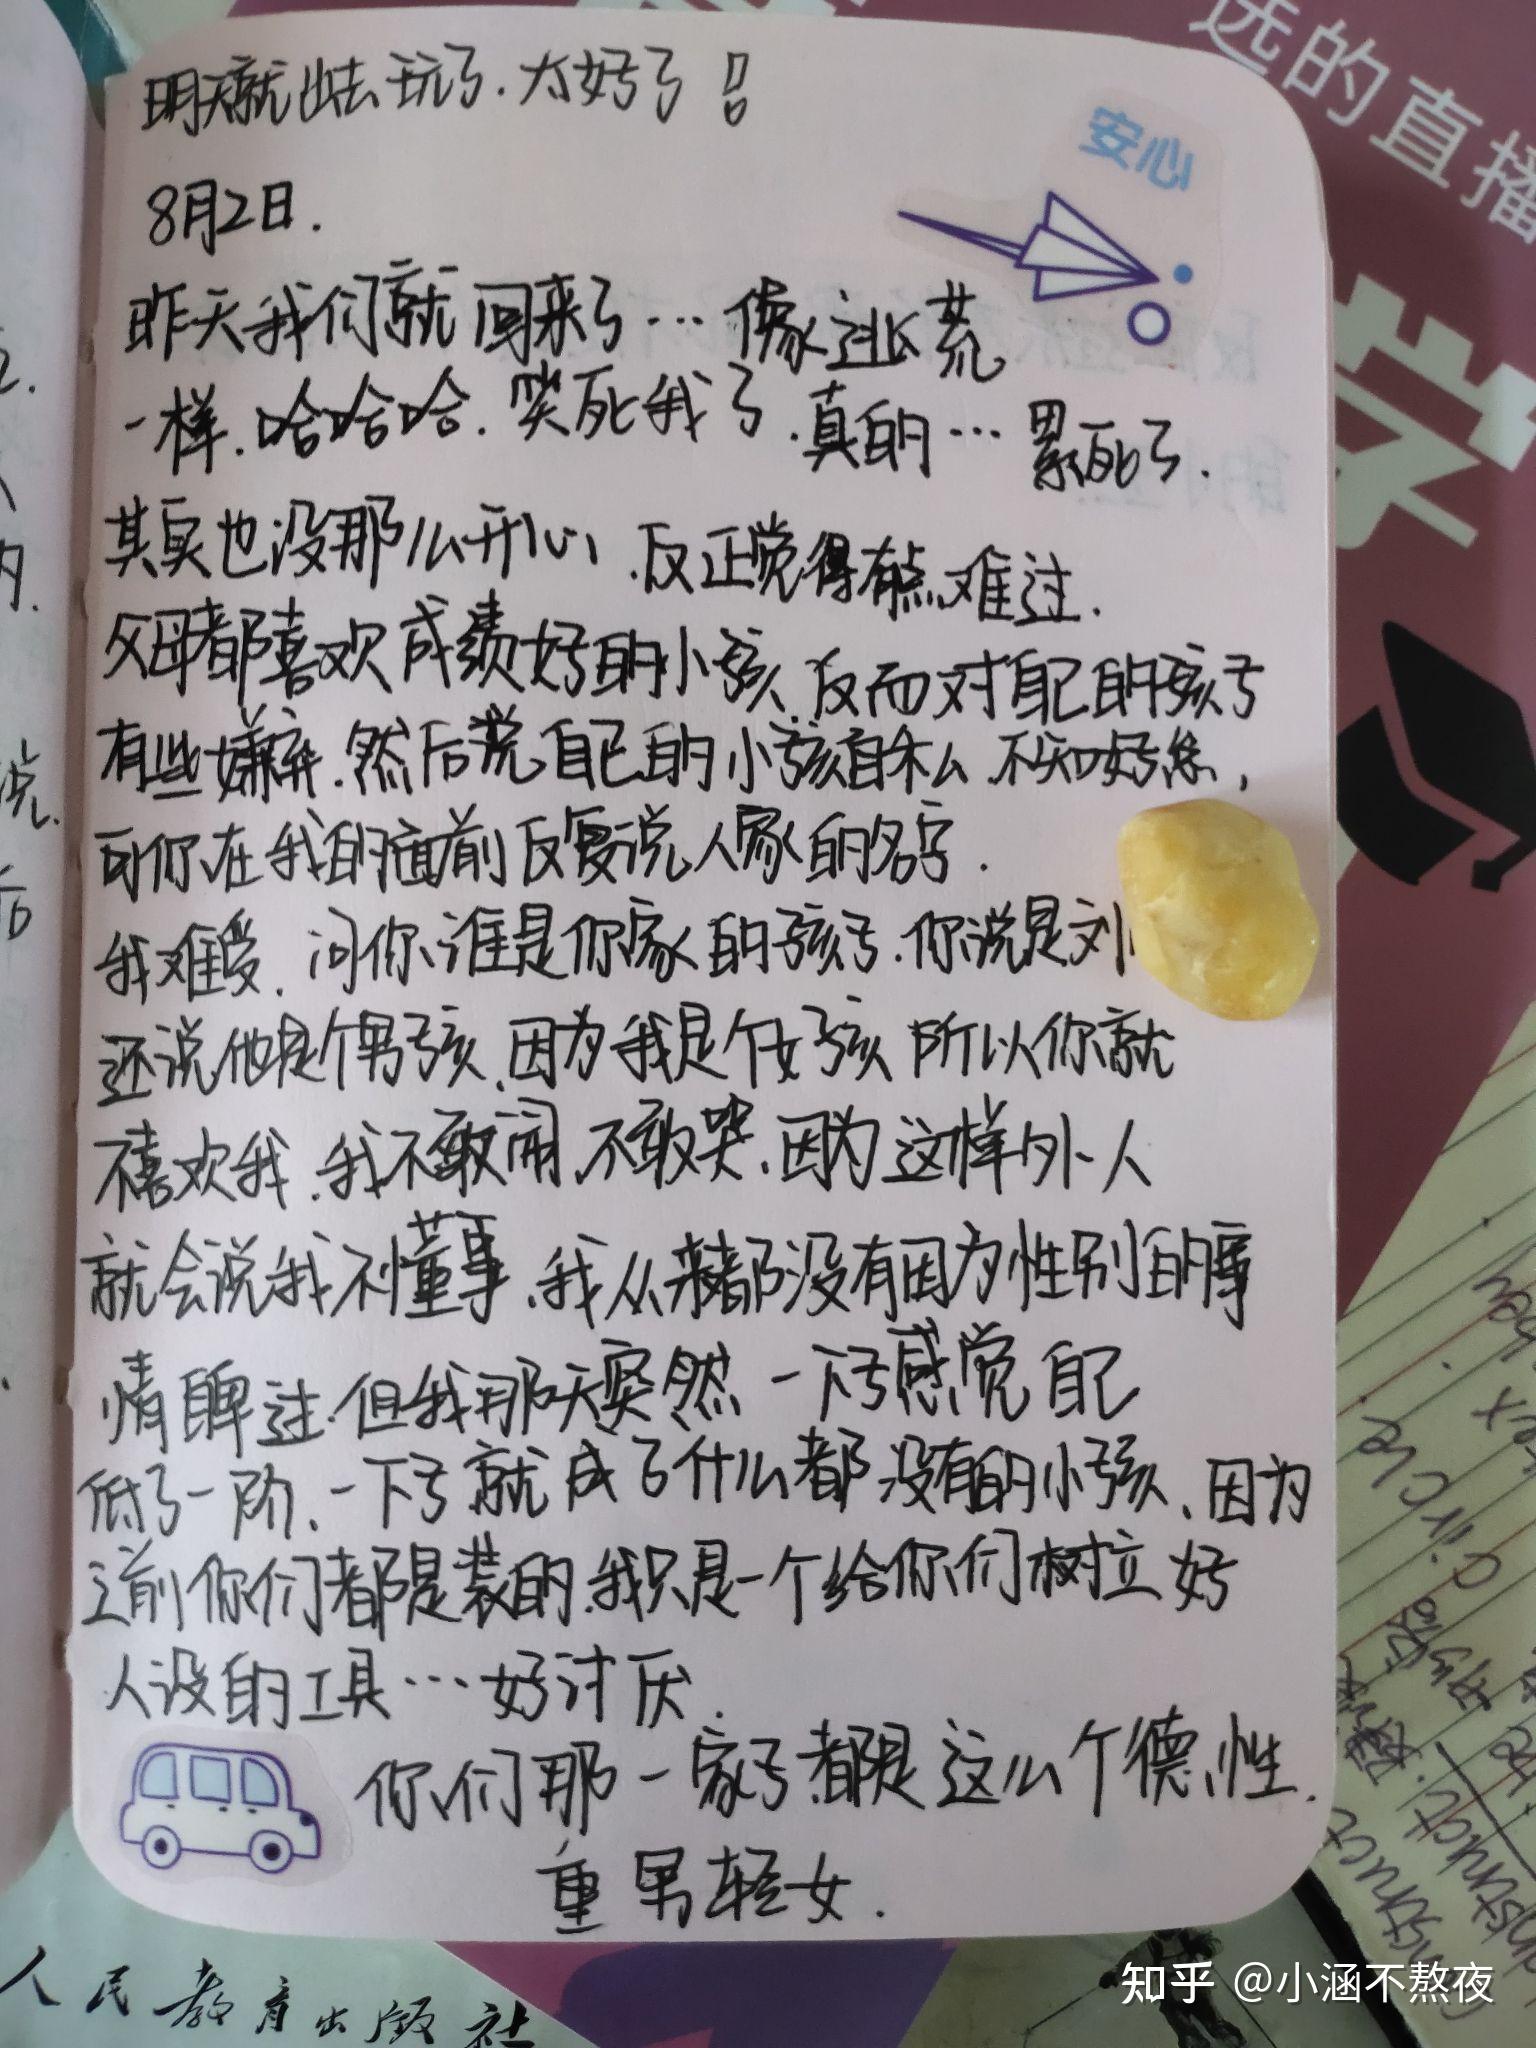 明天就出去玩了.太好了!
8月2日.
昨天我们就回来了…像逃荒
一样.哈哈哈.笑死我了.真的…累死了.
其实也没那么开心、.反正觉得有点难过.
父母都喜欢成绩好的小孩.反而对自己的孩子
有些嫌弃.然后说自己的小孩自私、不知好歹,
可你在我的面前反复说人家的名字.
我难受.问你谁是你家的孩子.你说是刘
还说他是个男孩.因为我是个女孩所以你就
不喜欢我.我不敢闹.不敢哭.因为这样外人
就会说我不懂事.我从来都没有因为性别的事
情自卑过.但我那天突然一下子感觉自己
低了一阶.一下子就成了什么都没有的小孩、因为
之前你们都是装的.我只是一个给你们树立好
人设的工具…好讨厌.
你们那一家子.都是这么个德性.
重男轻女.
安心
选的直播
学
人民教育出版社
circle
construct
知乎 @小涵不熬夜